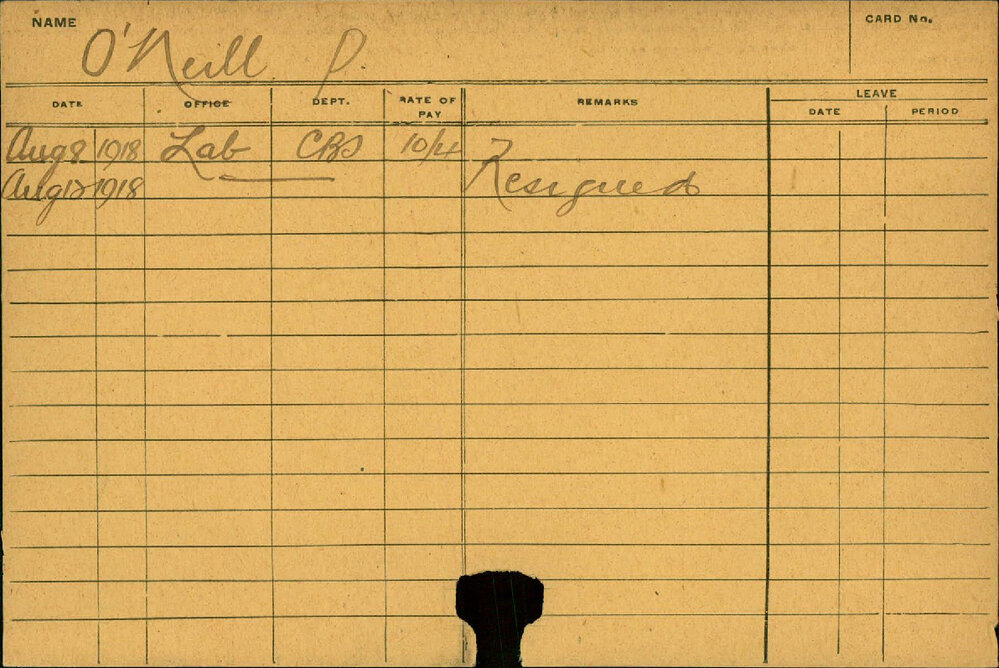 NAME O'Neill P. CARD No.
DATE OFFICE DEPT. RATE OF PAY REMARKS LEAVE
DATE PERIOD
Aug 8 1918 Lab CBS 10/4
Aug 1918 Resigned